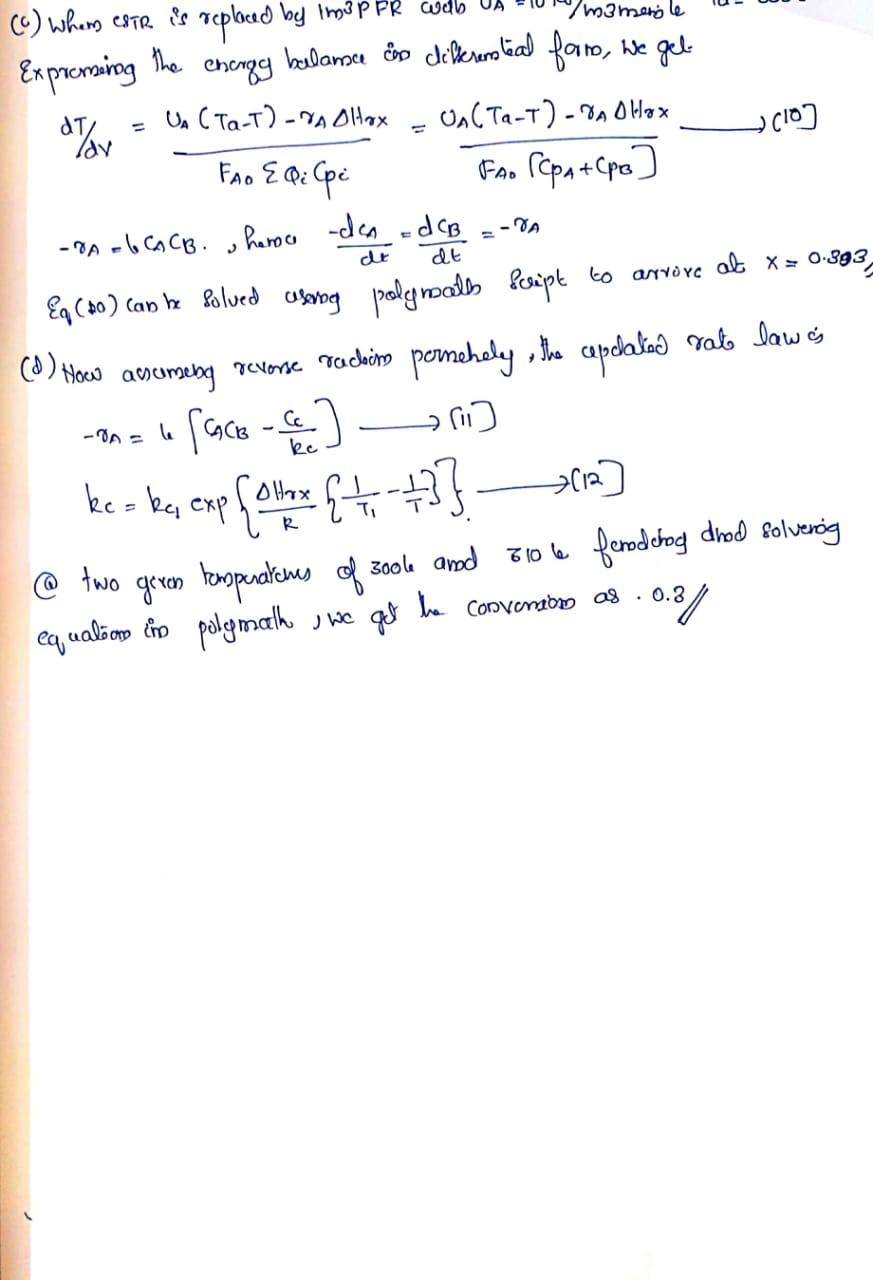 (c) When CSTR is replaced by 1m3 PFR with UA = 10 /m3 min k
Expressing the energy balance in differential form, we get
dT/dv = UA (Ta-T) - rA ΔHrx / FA0 Σ Φi Cpi = UA (Ta-T) - rA ΔHrx / FA0 [CpA + CpB] → (10]
-rA = k CA CB. , hence -dCA/dt = dCB/dt = -rA
Eq (10) can be solved using polymath script to arrive at X = 0.393
(d) Now assuming reverse reaction , the updated rate law is
-rA = k [CACB - Cc/kc] → (11]
kc = kc1 exp { ΔHrx/R { 1/T1 - 1/T } } → (12]
@ two given temperatures of 300k and 310 k and solving
equation in polymath , we get the conversion as . 0.3 //